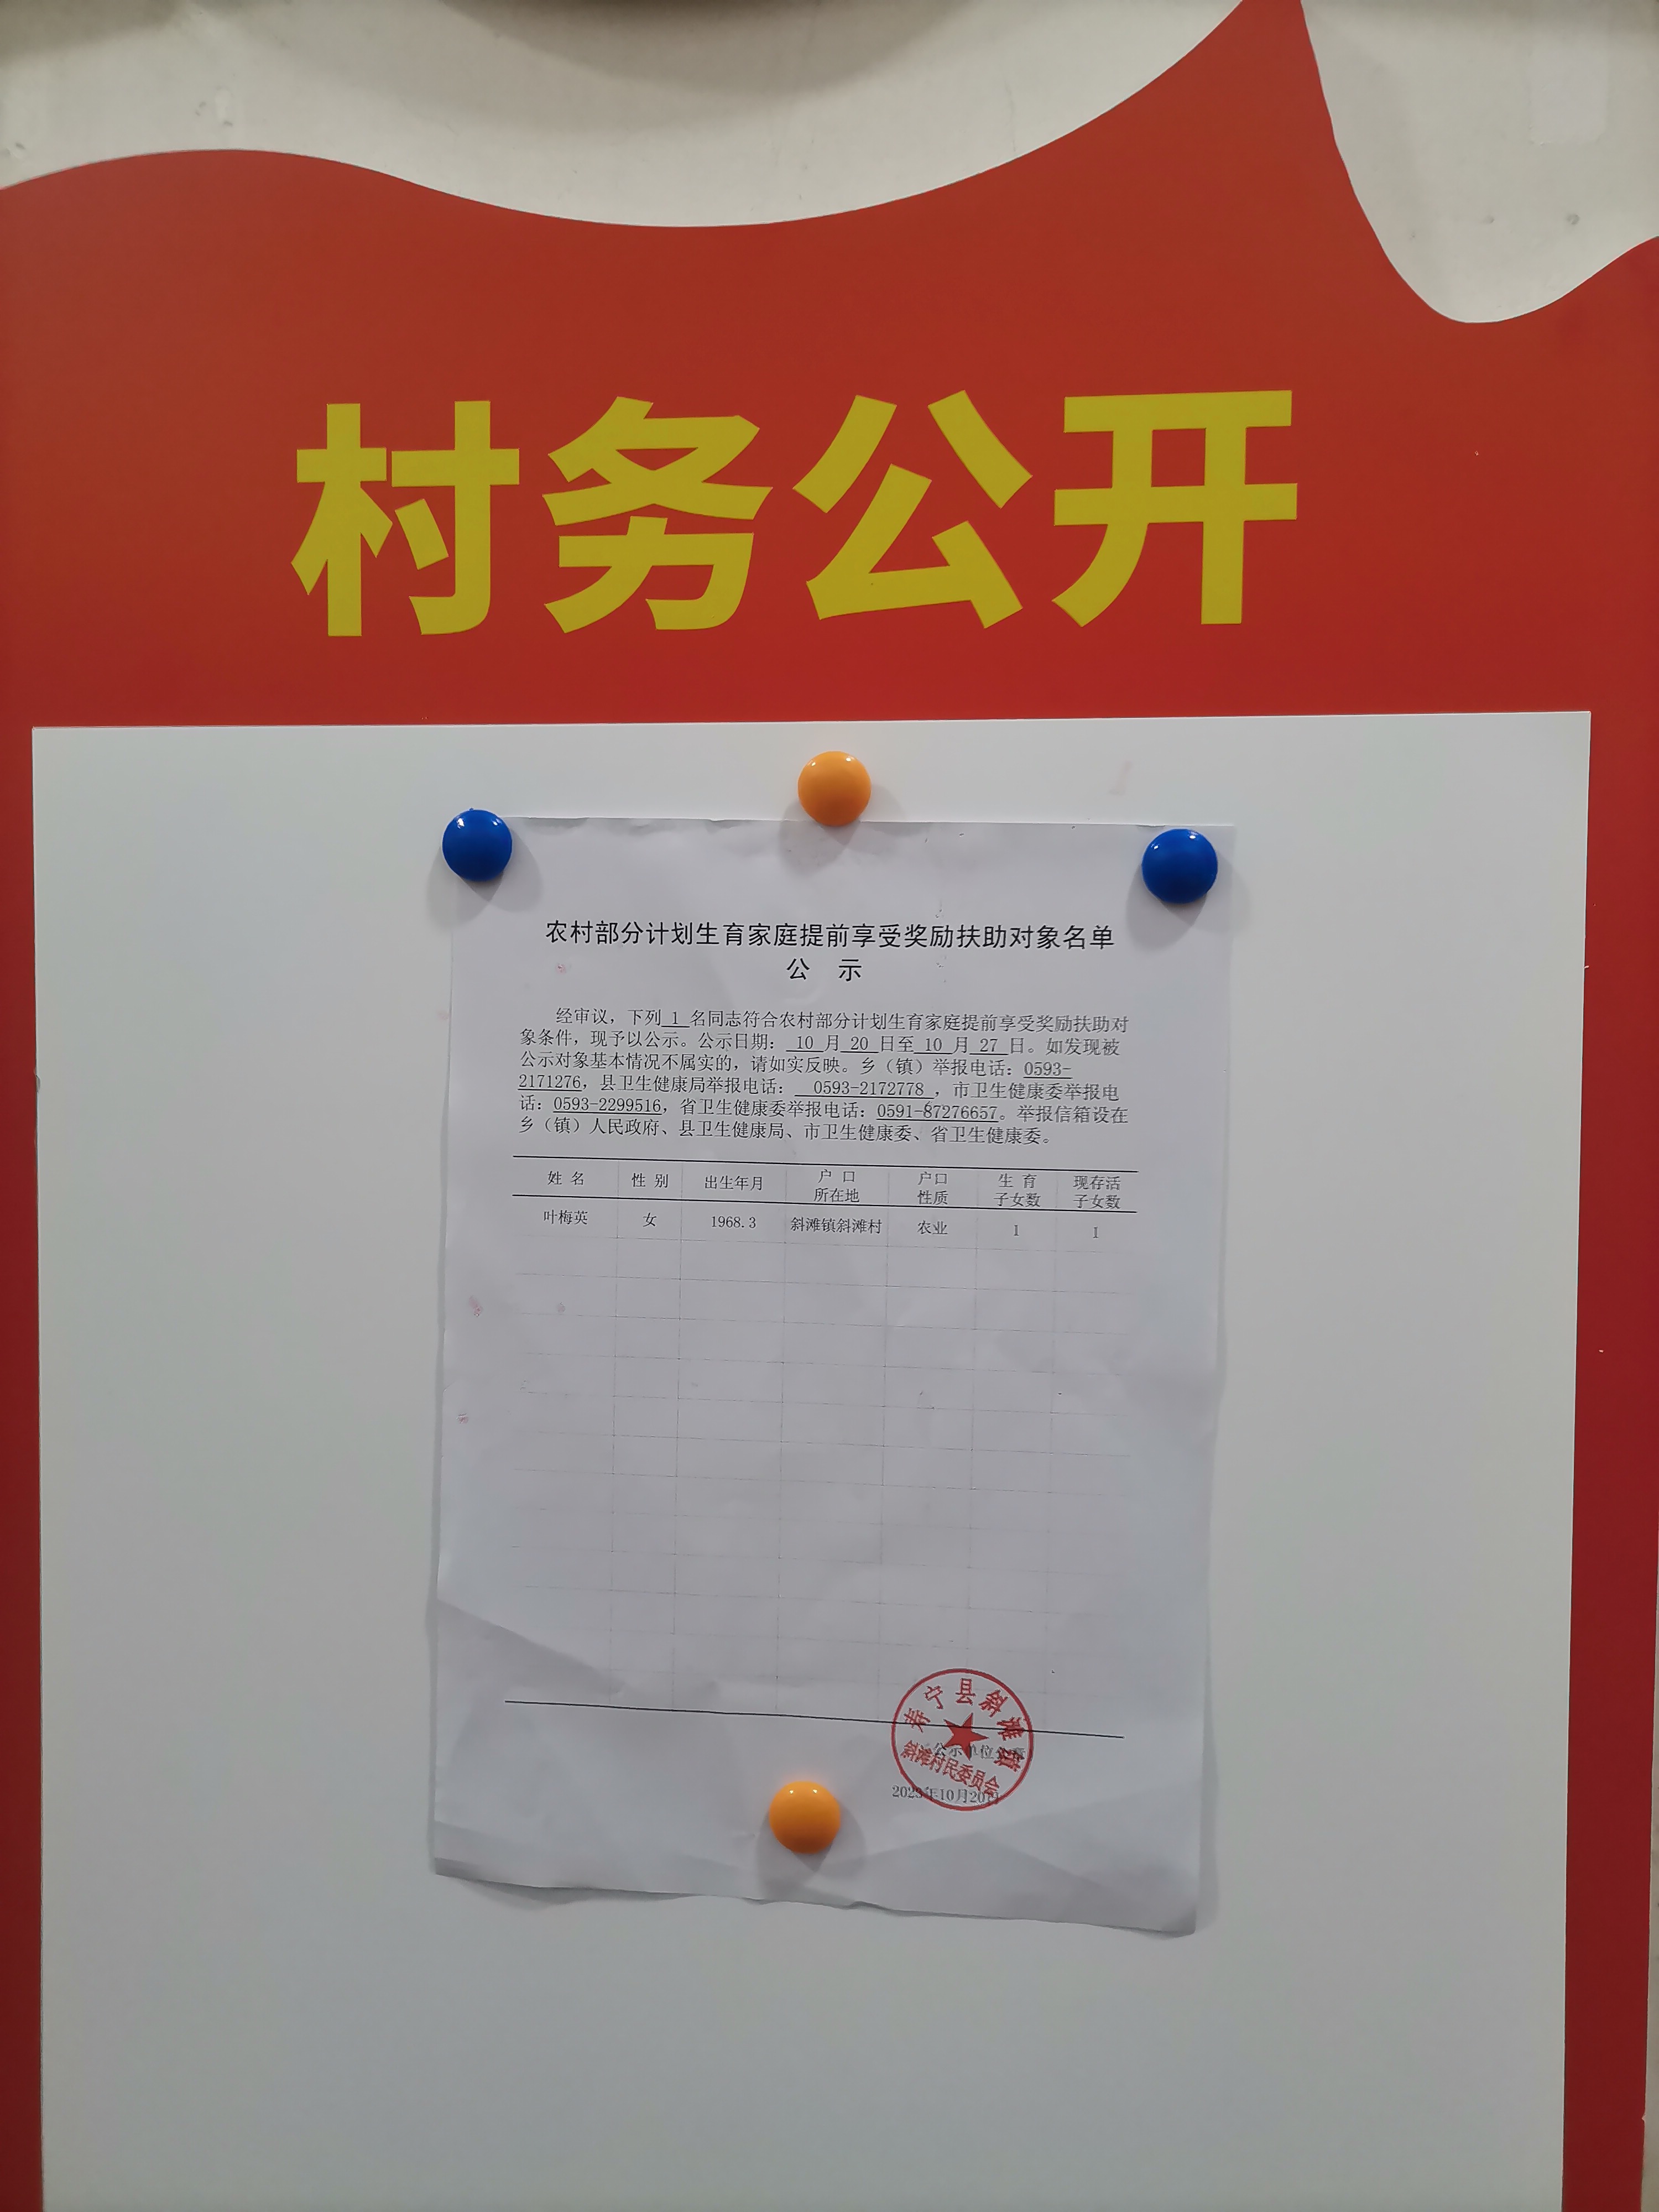 村务公开
农村部分计划生育家庭提前享受奖励扶助对象名单
公 示
经审议，下列 1 名同志符合农村部分计划生育家庭提前享受奖励扶助对
象条件，现予以公示。公示日期： 10 月 20 日至 10 月 27 日。如发现被
公示对象基本情况不属实的，请如实反映。乡（镇）举报电话：0593-
2171276，县卫生健康局举报电话： 0593-2172778 ，市卫生健康委举报电
话：0593-2299516，省卫生健康委举报电话：0591-87276657。举报信箱设在
乡（镇）人民政府、县卫生健康局、市卫生健康委、省卫生健康委。
姓 名 性 别 出生年月 户 口 所在地 户口 性质 生 育 子女数 现存活 子女数
叶梅英 女 1968.3 斜滩镇斜滩村 农业 1 1
寿宁县斜滩镇
公示单位
斜滩村民委员会
2023年10月20日